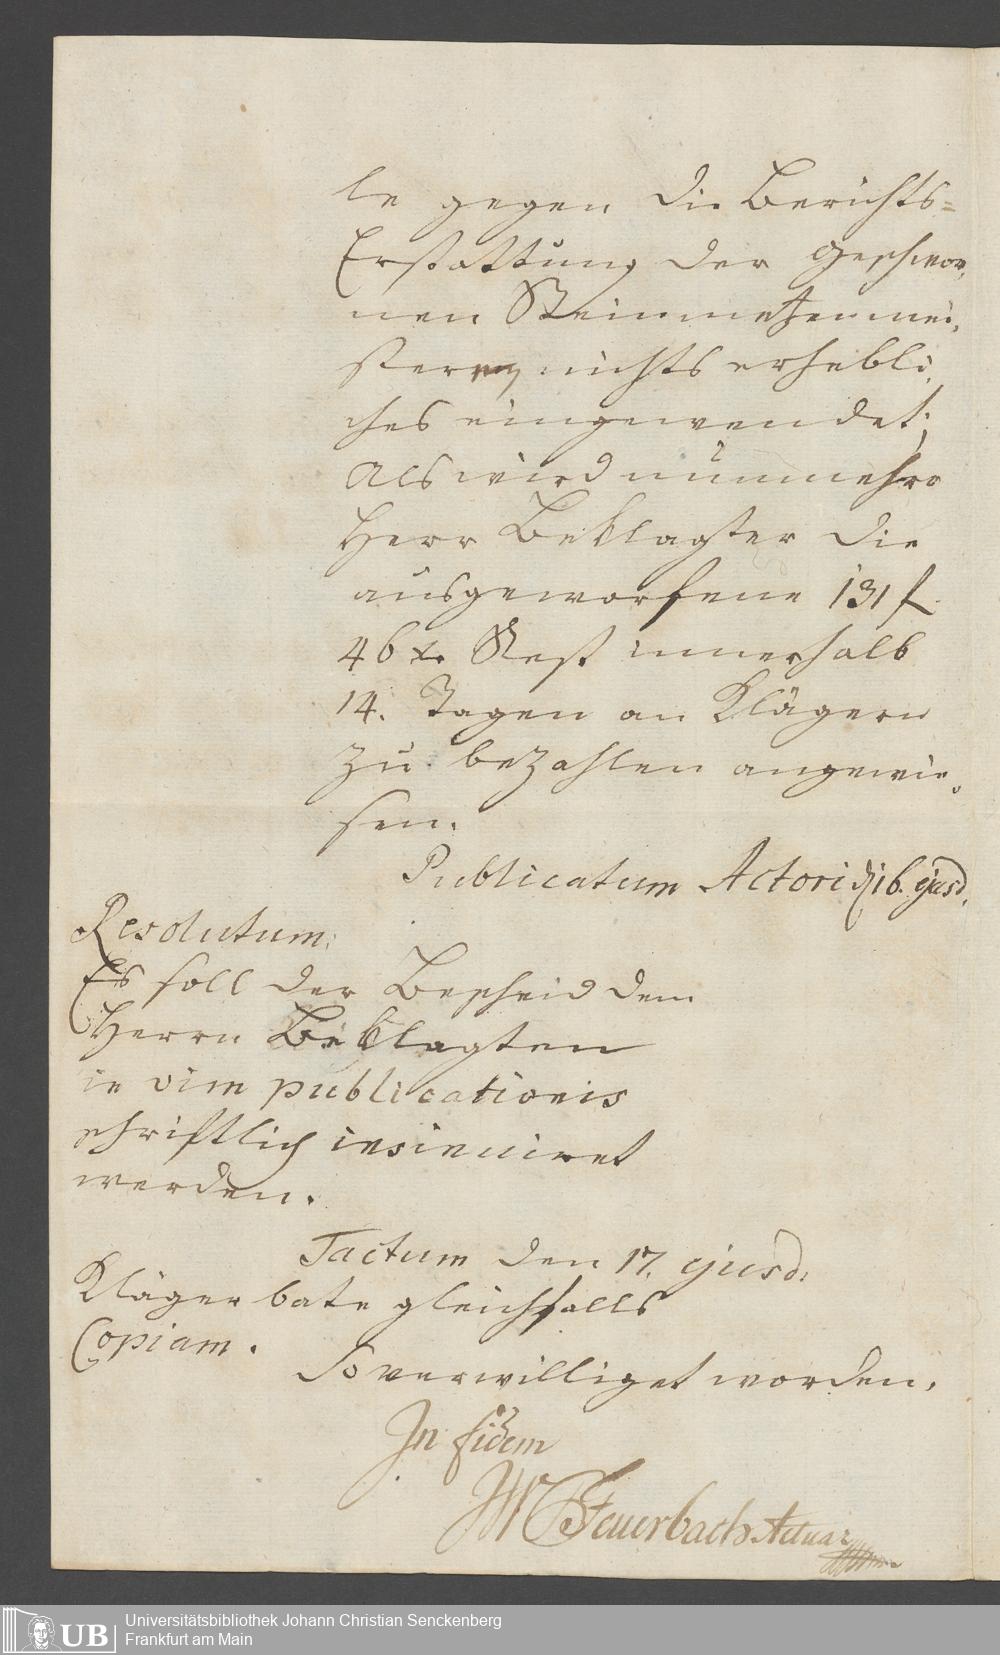 le gegen die Berichts=
Erstattung der Geschwor,
nen Steinmetzenmei,
sterey nichts erhebli,
ches eingewendet;
Als wird nunmehro
Herr Beklagter die
ausgeworfene 131 f
46 xr. Rest innerhalb
14. Tagen an Klägern
zu bezahlen angewie,
sen.
Publicatum Actori d. 16. ejusd.
Resolutum.
Es soll der Bescheid dem
Herrn Beklagten
in vim publicationis
schriftlich insinuiret
werden.
Factum den 17. ejusd.
Kläger bate gleichfalls
Copiam.
So verwilliget worden.
In fidem
Feuerbach Actuar
UB
Universitätsbibliothek Johann Christian Senckenberg
Frankfurt am Main